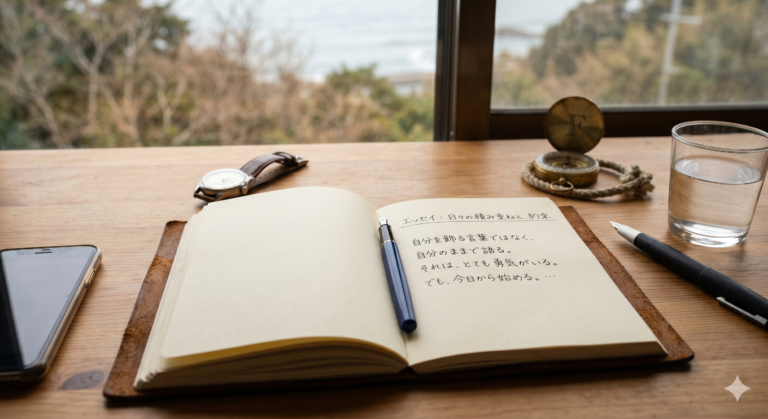 エッセイ：日々の積み重ねと、約束
自分を飾る言葉ではなく、
自分のままで語る。
それは、とても勇気がいる。
でも、今日から始める。…
F